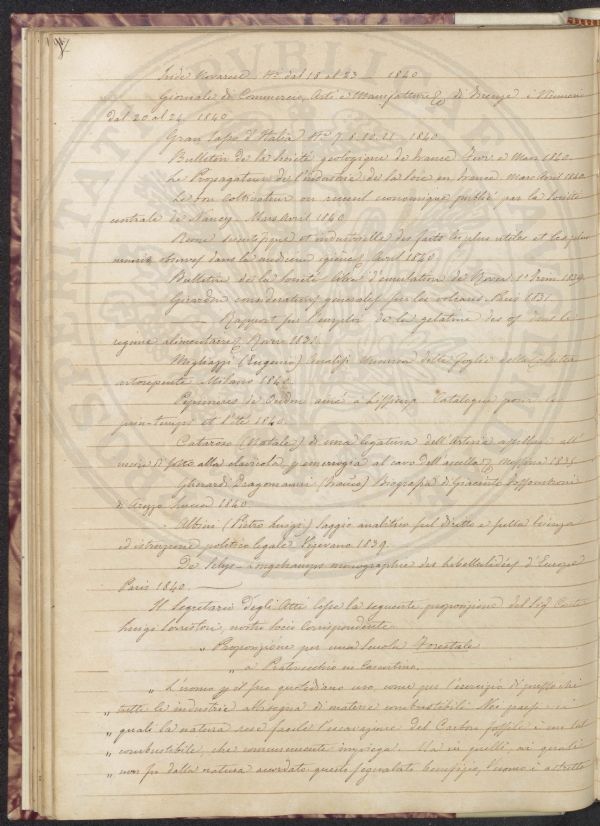 Iride Novarese N.º dal 18 al 23 _ 1840
Giornale di Commercio, Arti e Manifatture & di Firenze i Numeri
dal 20 al 24 1840
Gran Sasso d'Italia N.º 7. 8. 10. 11. 1840
Bulletin de la Société geologique de France Fevr. a Mars 1840.
Le Propagateur de l'industrie de la Soie en France Mars Avril 1840
Le bon Coltivateur ou recueil economique publié par la Société
centrale de Nancy. Mars Avril 1840
Revue scientifique et industrielle des faits les plus utiles et les plus
curieux observés dans la medecine Avril 1840
Bulletin de la Société libre d'emulation de Rouen 1839.
Girardin considerations generales sur les volcans 1831.
_______ Rapport sur l'emploi de la gelatine des os dans le
regime alimentaire Rouen 1831.
(Eugenio) Analisi della foglie della
Milano 1840.
Pepinieres de ainé a Catalogue pour le
printemps et l'Eté 1840.
(Natale) di una legatura dell'Arteria ascellare all'
fatta alla clavicola, p emorragia al cavo dell'ascella Messina 1835
Gherardi Dragomanni (Franco) Biografia di Giacinto Fossombroni
di Arezzo Lucca 1840
Albini (Pietro Luigi) Saggio analitico sul diritto e sulla scienza
ed istruzione politico legale Vigevano 1839.
De Selys-Longchamps monographie des Libellulidées d'Europe
Paris 1840. _____
Il Segretario degli Atti lesse la seguente proposizione del Sig. Conte
Luigi nostro Socio corrispondente.
" Proposizione per una Scuola Forestale
" a Pratovecchio in Casentino.
" L'uomo p il suo quotidiano uso come per l'esercizio di pressochè
" tutte le industrie abbisogna di materie combustibili. Nei paesi in
" quali la natura rese facile l'escavazione del Carbon fossile è un tal
" combustibile, che comunemente impiega. Ma in quelli, ai quali
" non fu dalla natura accordato questo segnalato benefizio, l'uomo è astretto